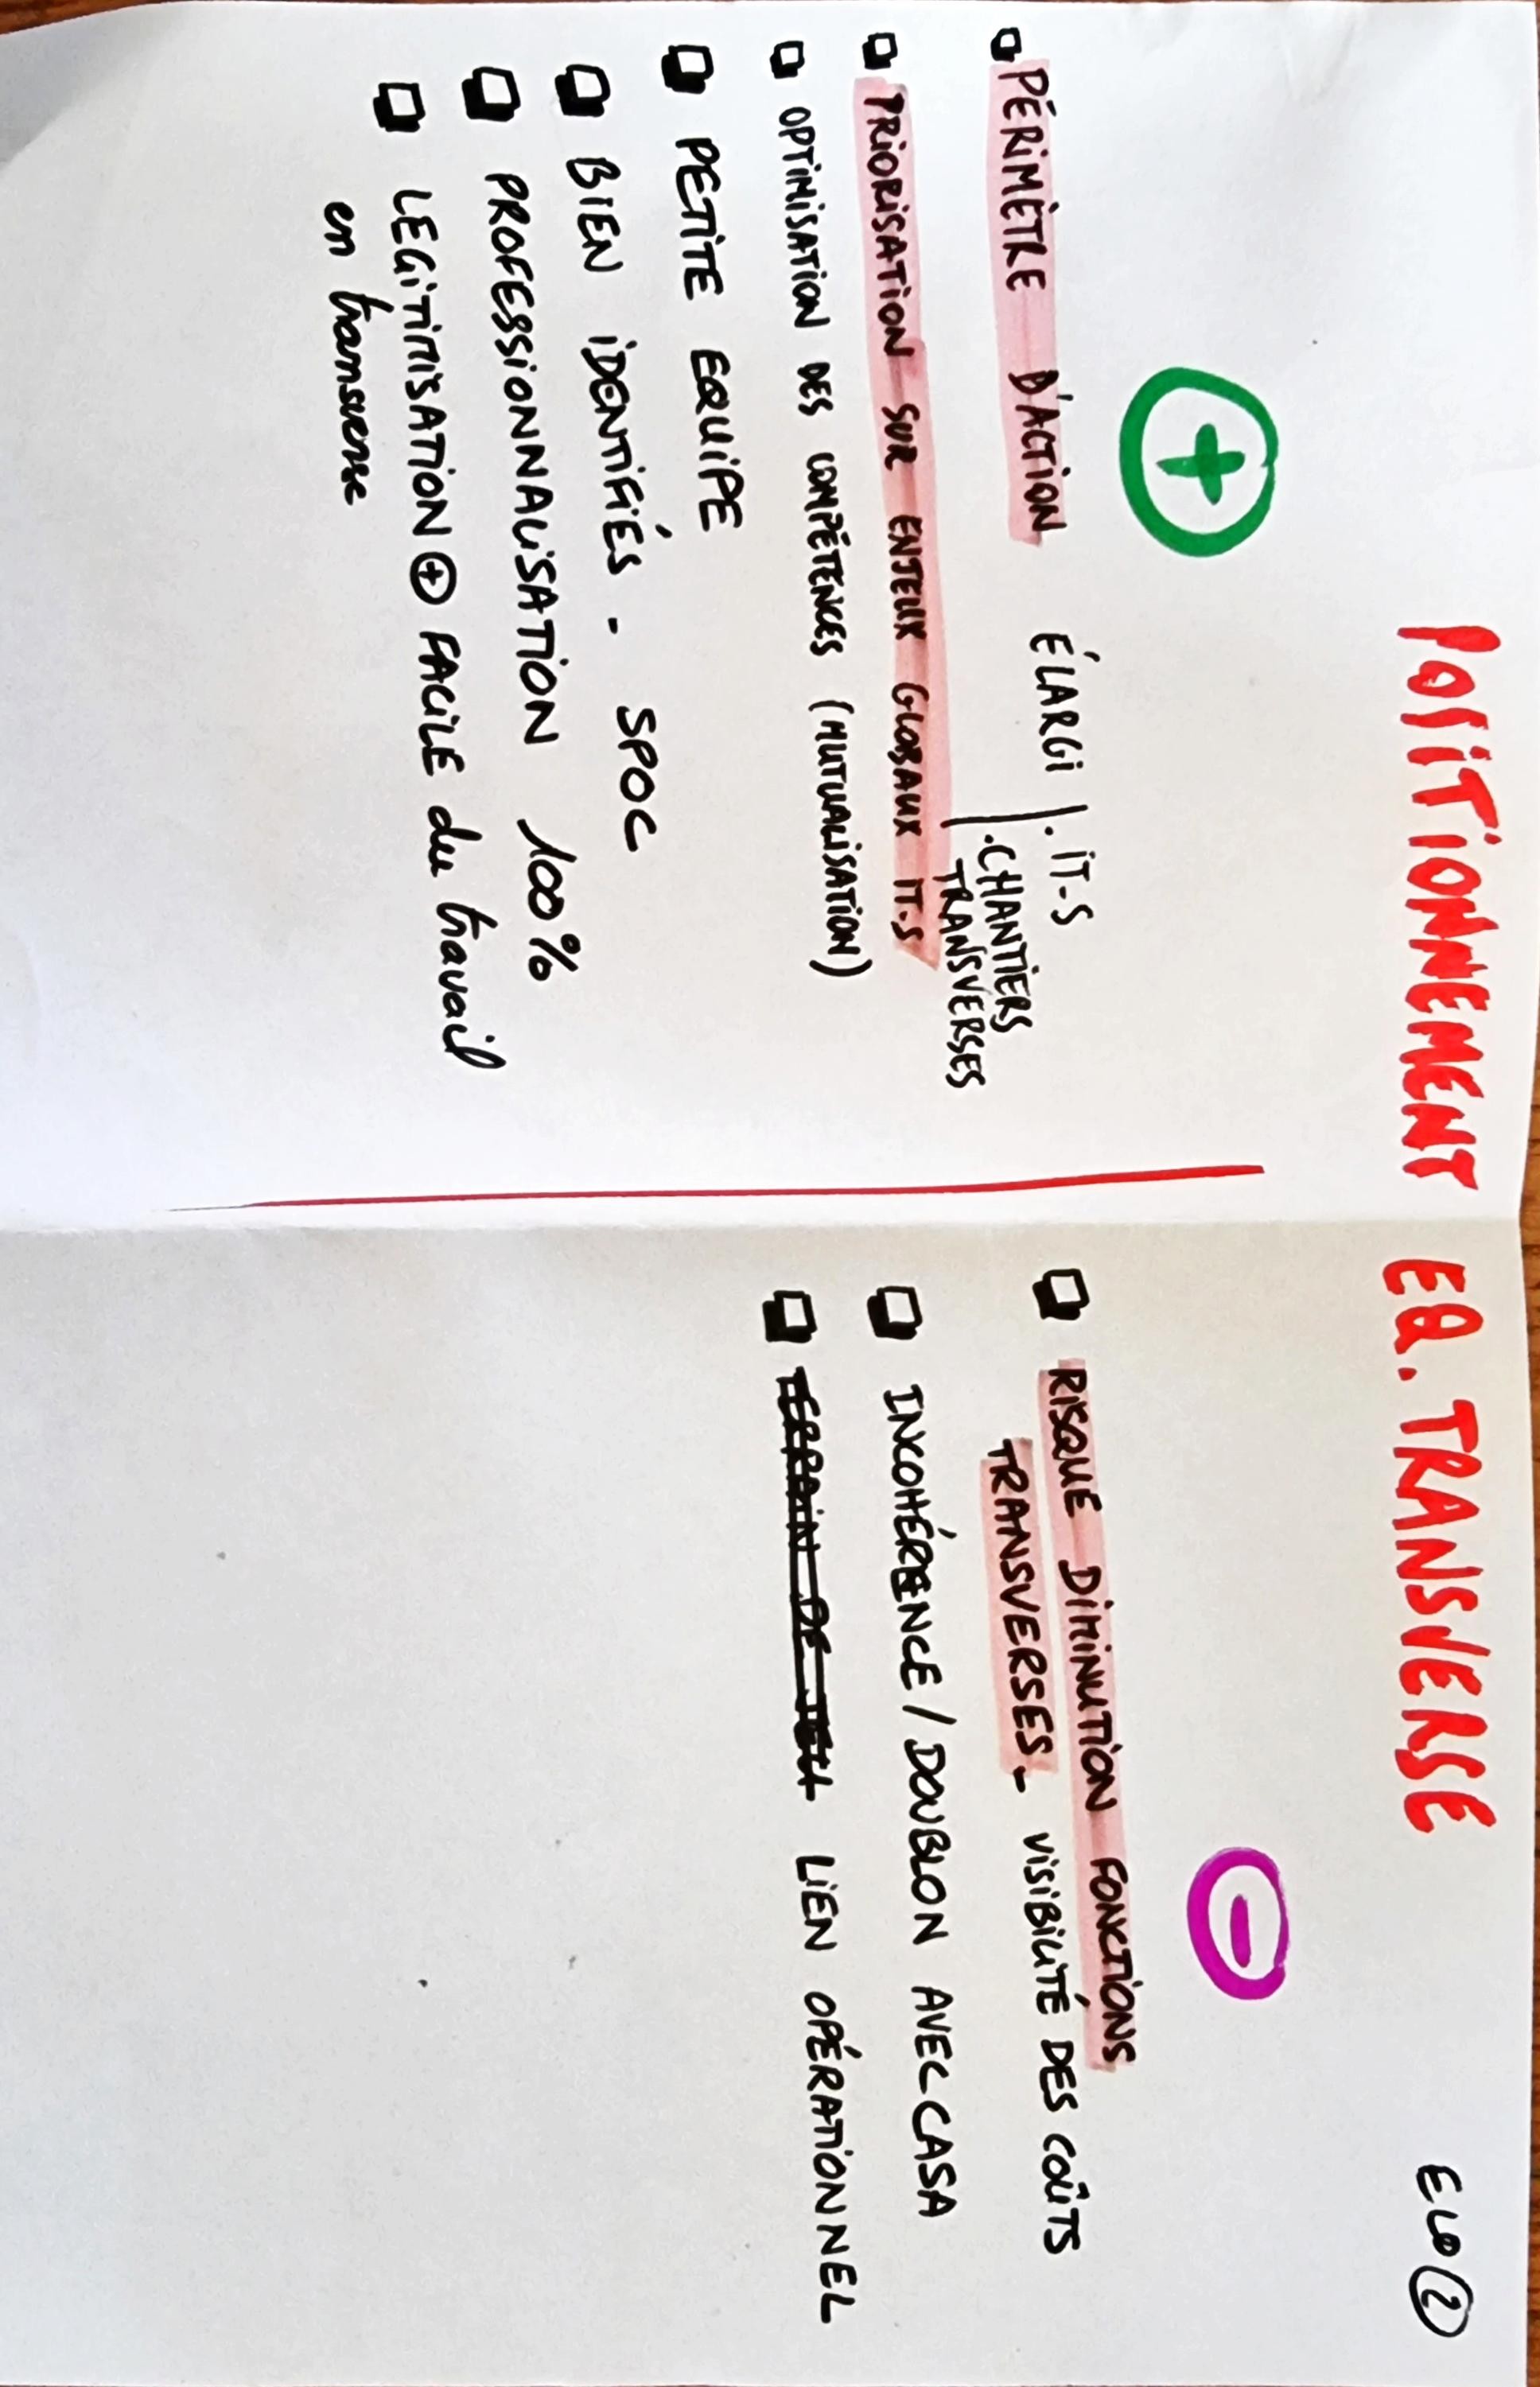 POSITIONNEMENT EQ. TRANSVERSE
ELO ②
+
PÉRIMÈTRE D'ACTION ÉLARGI . IT-S
. CHANTIERS
TRANSVERSES
PRIORISATION SUR ENJEUX GLOBAUX IT-S
OPTIMISATION DES COMPÉTENCES (MUTUALISATION)
PETITE EQUIPE
BIEN IDENTIFIÉS - SPOC
PROFESSIONNALISATION 100%
LEGITIMISATION ⊕ FACILE du travail
en transverse
-
RISQUE DIMINUTION FONCTIONS
TRANSVERSES - VISIBILITÉ DES COÛTS
INCOHÉRENCE / DOUBLON AVEC CASA
LIEN OPÉRATIONNEL